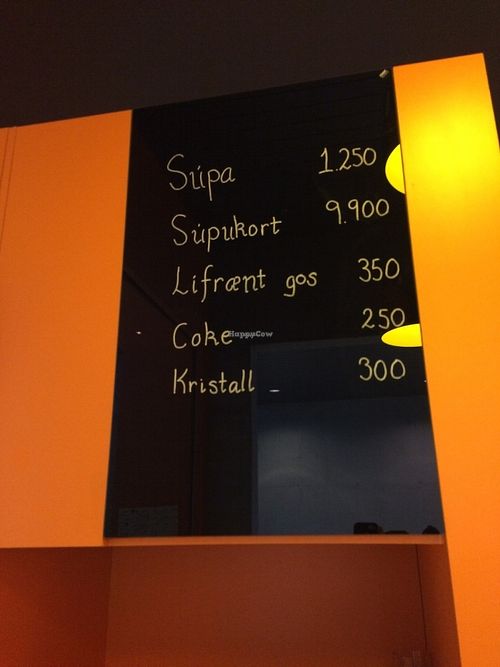 Súpa 1.250
Súpukort 9.900
Lifrænt gos 350
Coke 250
HappyCow
Kristall 300